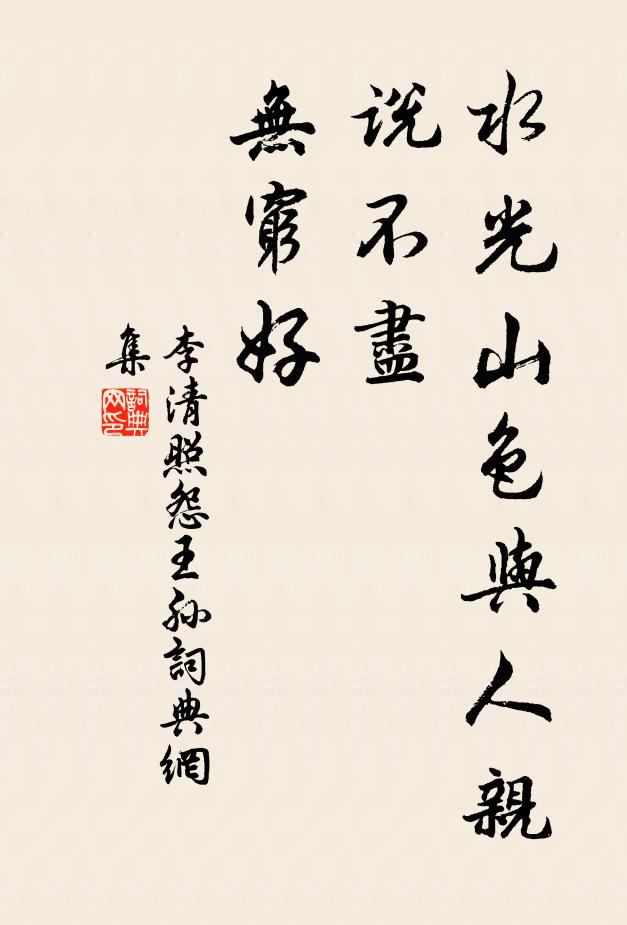 水光山色與人親
說不盡
無窮好
李清照怨王孫詞典網
集
詞典
网印